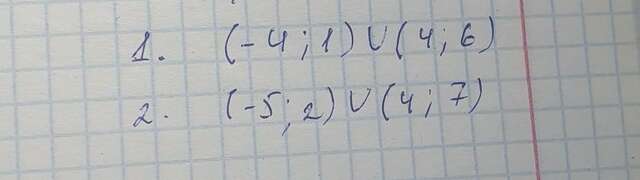 1. (-4; 1) ∪ (4; 6)
2. (-5; 2) ∪ (4; 7)